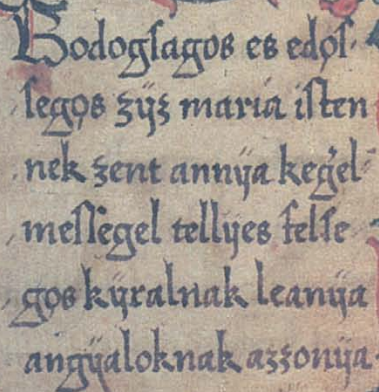 Bodogſagos es edoſ-
ſegos zÿz maria iſten
nek zent annÿa keǵel-
meſſegel tellÿes felſe
gos kÿralnak leanÿa
angÿaloknak azzonÿa